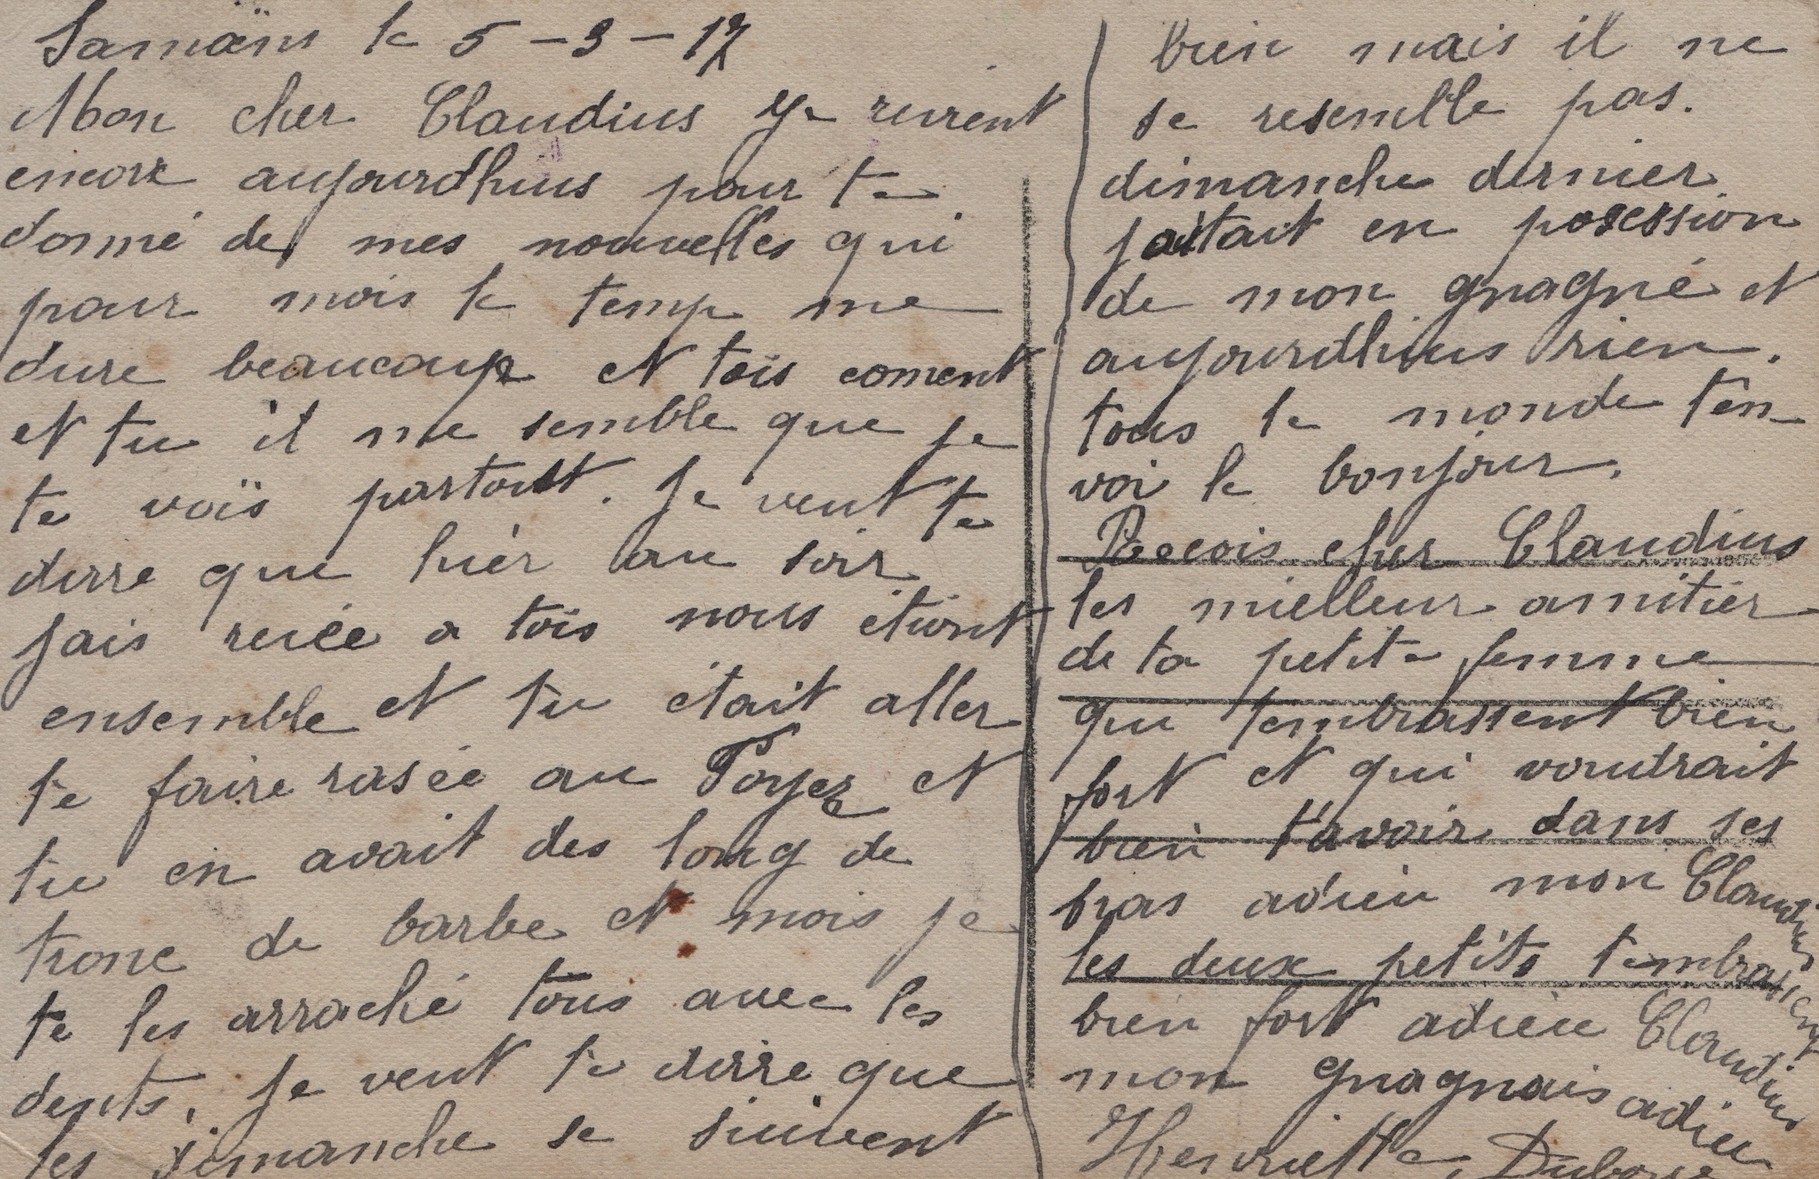 Samoëns le 5 - 3 - 17
Mon cher Claudius Je revient
encore aujourdhuis pour te
donné de mes nouvelles qui
pour mois le temp me
dure beaucoup et tois coment
et tu il me semble que je
te voïs partout. Je veut te
dirre que hièr au soir
jais revée a tois nous étiont
ensemble et tu était aller
te faire rasée au et
tu en avait des long de
tronc de barbe et mois je
te les arraché tous avec les
dents. Je veut te dirre que
les dimanche se suivent
bien mais il ne
se resemble pas.
dimanche dernier
jaitait en posession
de mon gnagné et
aujourdhuis rien.
tous le monde t'en
voi le bonjour.
Recois cher Claudius
les mielleur amitier
de ta petite femme
qui tembrassent bien
fort et qui voudrait
bien t'avoir dans ses
bras adieu mon Claudius
les deux petits tembrassent
bien fort adieu Claudius
mon gnagnais adieu
Henriette